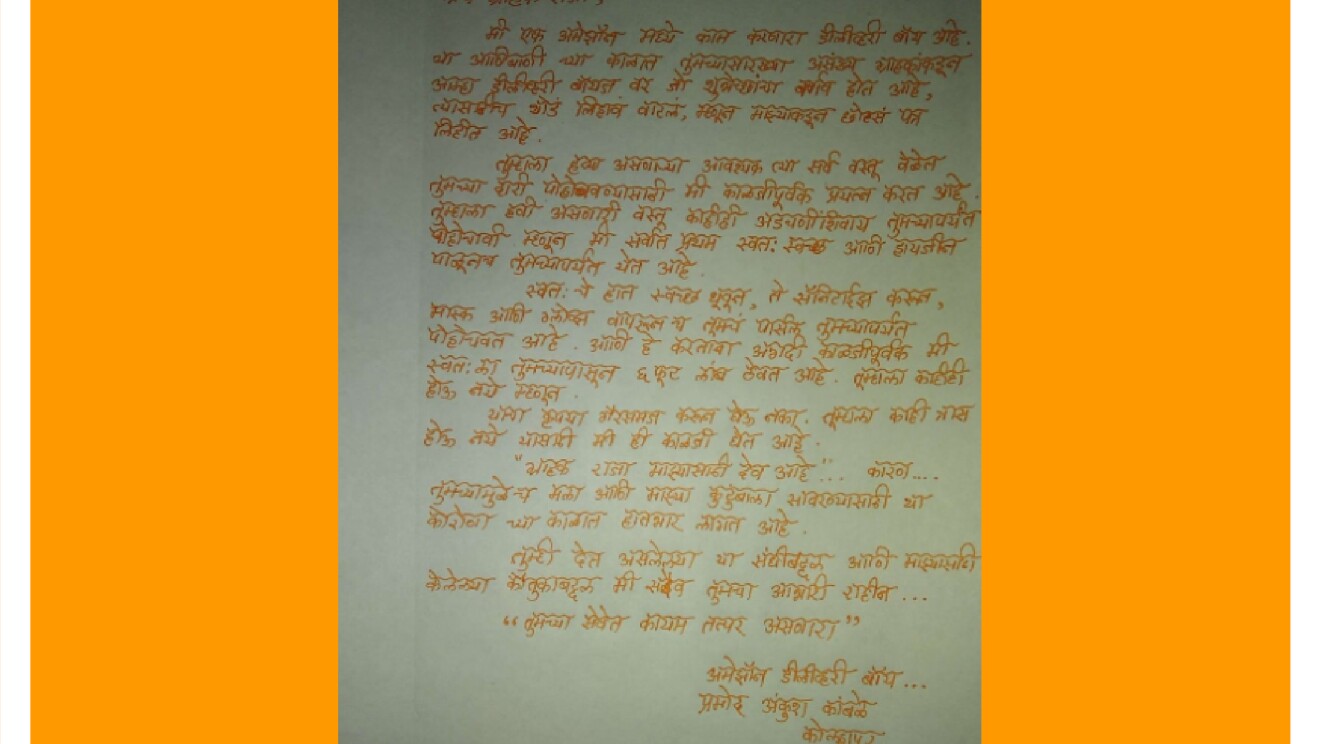 मी एक अमेझॉन मध्ये काम करणारा डीलीव्हरी बॉय आहे.
या आणिबाणी च्या काळात तुमच्यासारख्या असंख्य ग्राहकांकडून
आम्हा डीलीव्हरी बॉयज वर जो शुभेच्छांचा वर्षाव होत आहे,
त्यासाठीच थोडं लिहावं वाटलं, म्हणून माझ्याकडून छोटसं पत्र
लिहीत आहे.
तुम्हाला हव्या असणाऱ्या आवश्यक त्या सर्व वस्तू वेळेत
तुमच्या दारी पोहोचवण्यासाठी मी काळजीपूर्वक प्रयत्न करत आहे.
तुम्हाला हवी असणारी वस्तू काहीही अडचणींशिवाय तुमच्यापर्यंत
पोहोचावी म्हणून मी सर्वात प्रथम स्वत: स्वच्छ आणि हायजीन
पाळूनच तुमच्यापर्यंत येत आहे.
स्वत: चे हात स्वच्छ धुवून, ते सॅनिटाईझ करून,
मास्क आणि ग्लोव्ह्ज वापरूनच तुमचं पार्सल तुमच्यापर्यंत
पोहोचवत आहे. आणि हे करताना अगदी काळजीपूर्वक मी
स्वत: ला तुमच्यापासून ६ फूट लांब ठेवत आहे. तुम्हाला काहीही
होऊ नये म्हणून.
यांचा कृपया गैरसमज करून घेऊ नका. तुम्हाला काही त्रास
होऊ नये यासाठी मी ही काळजी घेत आहे.
"ग्राहक राजा माझ्यासाठी देव आहे"... कारण....
तुमच्यामुळेच मला आणि माझ्या कुटुंबाला सावरण्यासाठी या
कोरोना च्या काळात हातभार लागत आहे.
तुम्ही देत असलेल्या या संधीबद्दल आणि माझ्यासाठी
केलेल्या कौतुकाबद्दल मी सदैव तुमचा आभारी राहीन...
"तुमच्या सेवेत कायम तत्पर असणारा"
अमेझॉन डीलीव्हरी बॉय...
प्रमोद अंकुश कांबळे
कोल्हापूर